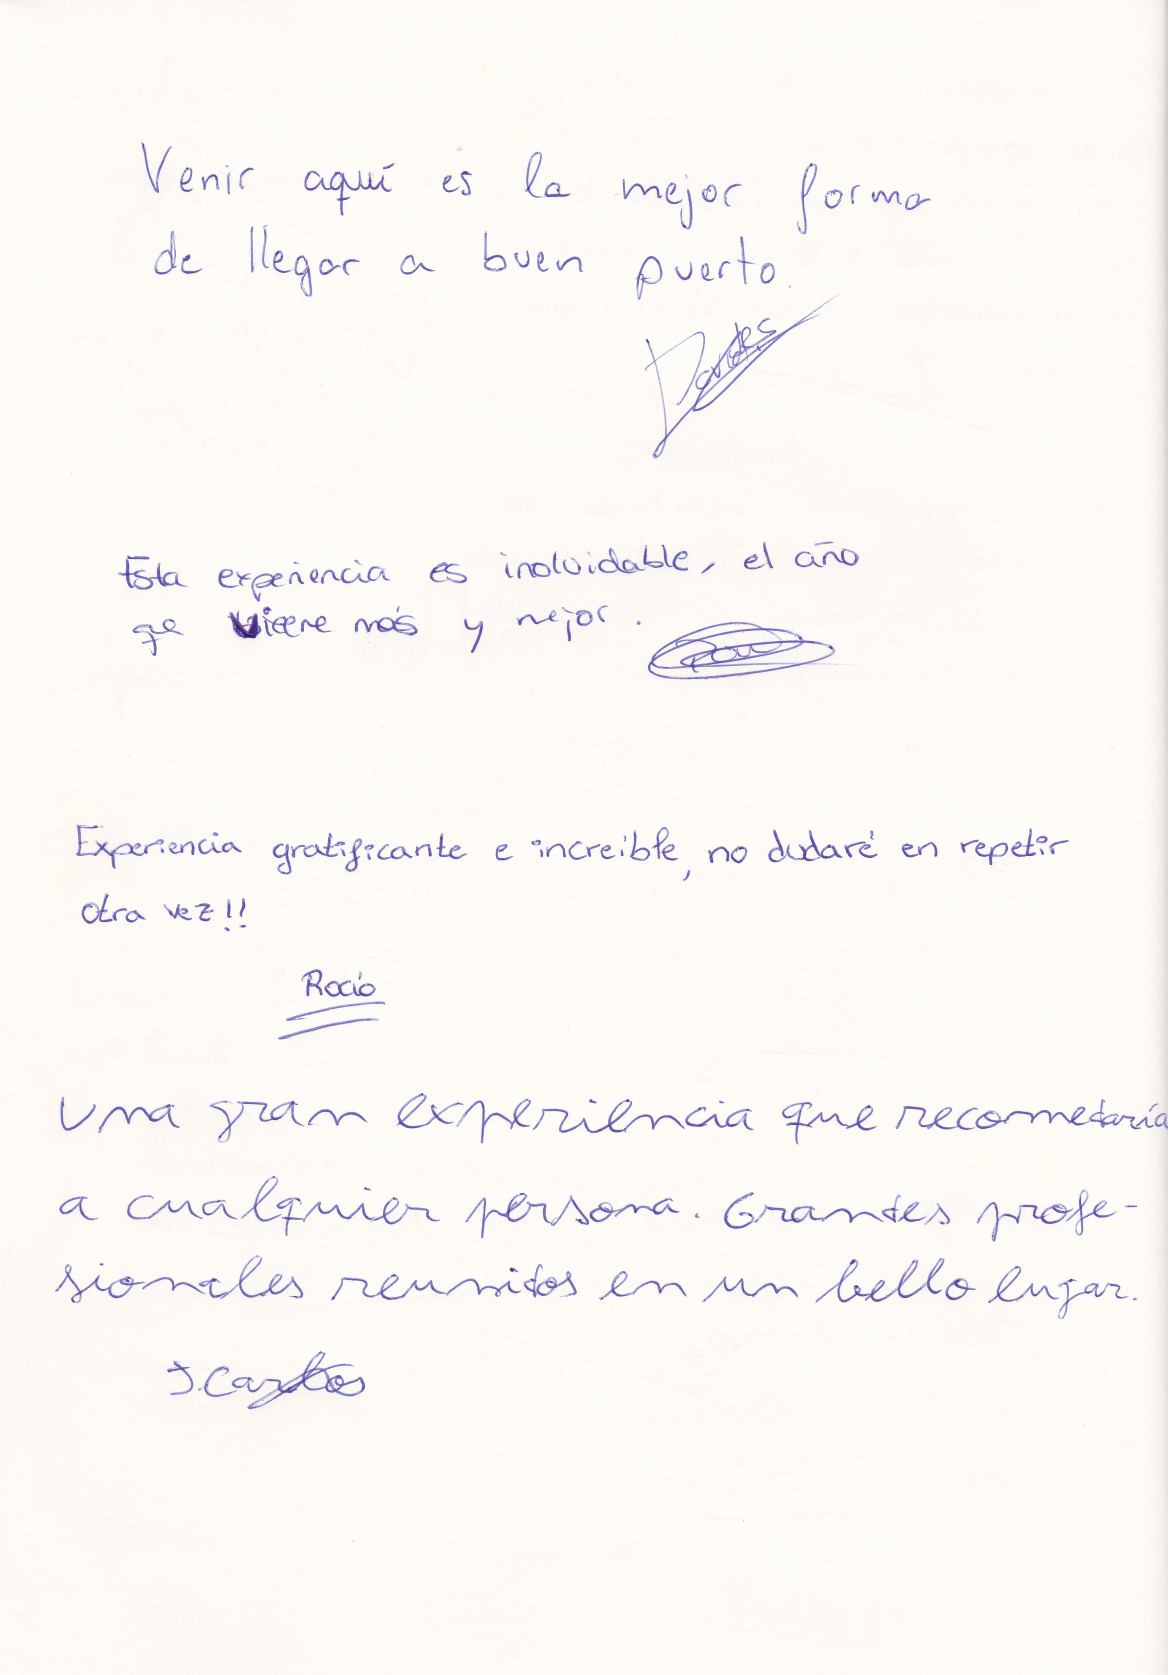 Venir aquí es la mejor forma
de llegar a buen puerto.
Esta experiencia es inolvidable, el año
que viene más y mejor.
Experiencia gratificante e increíble, no dudaré en repetir
otra vez!!
Rocío
Una gran experiencia que recomedaría
a cualquier persona. Grandes profe-
sionales reunidos en un bello lugar.
J. Carlos